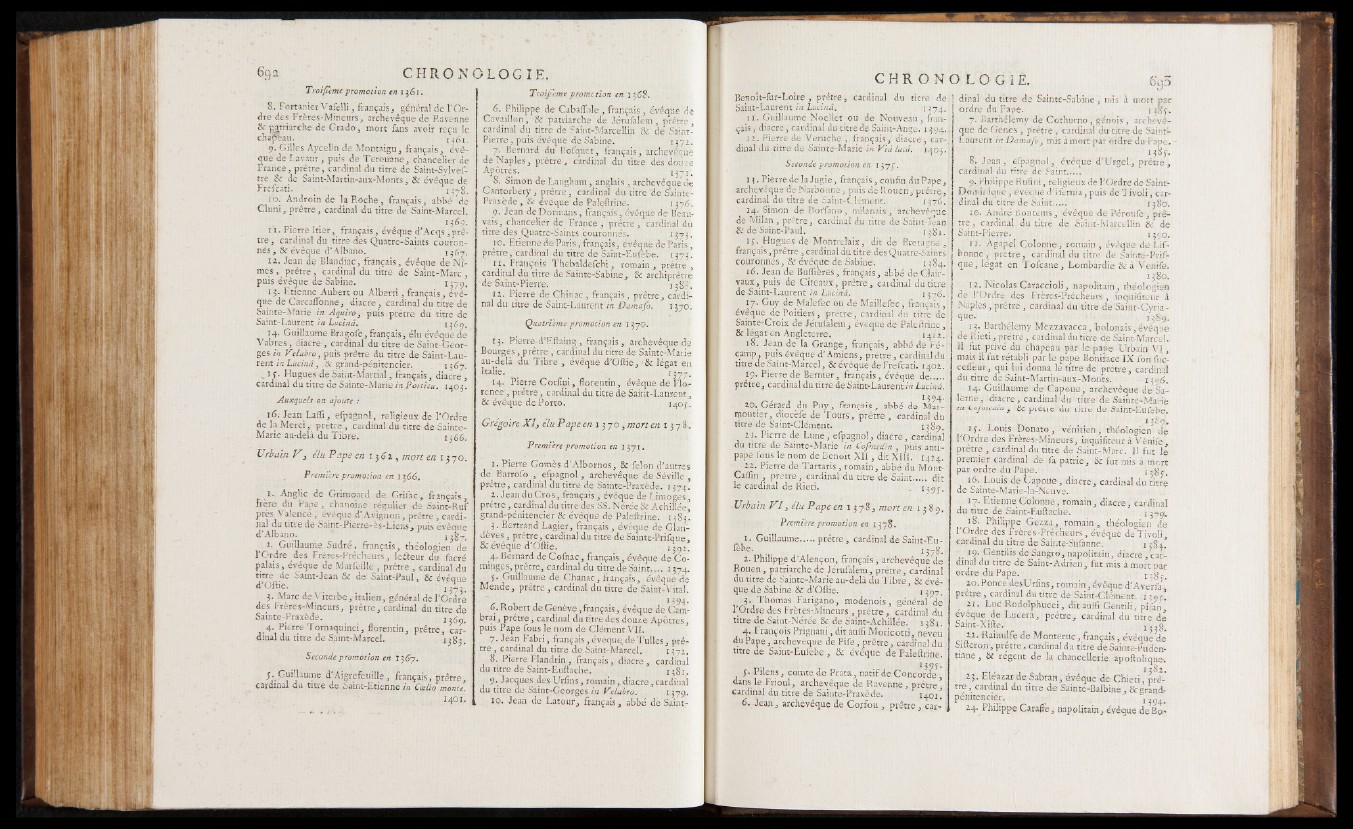 692 CHRONOLOGIE.
Troisième promotion en 1361.
8. Fortanier Vaselli, français, général de l'Or-
dre des Frères-Mineurs, archevêque de Ravenne
& patriarche de Grado, mort sans avoir reçu le
chapeau. 1361.
9. Gilles Aycelin de Montaigu, français, évê-
que de Lavaur, puis de Térouane, chancelier de
France, prêtre, cardinal du titre de Saint-Sylves-
tre & de Saint-Martin-aux-Monts, & évêque de
Frescati. 1378.
10. Androin de la Roche, français, abbé de
Cluni, prêtre, cardinal du titre de Saint-Marcel.
1369.
11. Pierre Itier, français, évêque d'Acqs, prê-
tre, cardinal du titre des Quatre-Saints couron-
nés, & évêque d'Albano. 1367.
12. Jean de Blandiac, français, évêque de Nî-
mes, prêtre, cardinal du titre de Saint-Marc,
puis évêque de Sabine. 1379.
13. Etienne Aubert ou Alberti, français, évê-
que de Carcassonne, diacre, cardinal du titre de
Sainte-Marie in Aquiro, puis prêtre du titre de
Saint-Laurent in Lucinâ. 1369.
14. Guillaume Bragose, français, élu évêque de
Vabres, diacre, cardinal du titre de Saint-Geor-
ges in Velabro, puis prêtre du titre de Saint-Lau-
rent in Lucinâ, & grand-pénitencier. 1367.
15. Hugues de Saint-Martial, français, diacre,
cardinal du titre de Sainte-Marie in Porticu. 1403.
Auxquels on ajoute :
16. Jean Lassi, espagnol, religieux de l'Ordre
de la Merci, prêtre, cardinal du titre de Sainte-
Marie au-delà du Tibre. 1366.
Urbain V, élu Pape en 1362, mort en 1370.
Première promotion en 1366.
1. Anglic de Grimoard de Grisac, français,
frère du Pape, chanoine régulier de Saint-Ruf
près Valence, évêque d'Avignon, prêtre, cardi-
nal du titre de Saint-Pierre-ès-Liens, puis évêque
d'Albano. 1387.
2. Guillaume Sudré, français, théologien de
l'Ordre des Frères-Prêcheurs, lecteur du sacré
palais, évêque de Marseille, prêtre, cardinal du
titre de Saint-Jean & de Saint-Paul, & évêque
d'Ostie. 1373.
3. Marc de Viterbe, italien, général de l'Ordre
des Frères-Mineurs, prêtre, cardinal du titre de
Sainte-Praxède. 1369.
4. Pierre Tornaquinci, florentin, prêtre, car-
dinal du titre de Saint-Marcel. 1383.
Seconde promotion en 1367.
5. Guillaume d'Aigrefeuille, français, prêtre,
cardinal du titre de Saint-Etienne in Cælio monte.
1401.
Troisième promotion en 1368.
6. Philippe de Cabassole, français, évêque de
Cavaillon, & patriarche de Jérusalem, prêtre,
cardinal du titre de Saint-Marcellin & de Saint-
Pierre, puis évêque de Sabine. 1372.
7. Bernard du Bosquet, français, archevêque
de Naples, prêtre, cardinal du titre des douze
Apôtres. 1371.
8. Simon de Langham, anglais, archevêque de
Cantorbéry, prêtre, cardinal du titre de Sainte-
Praxède, & évêque de Palestrine. 1376.
9. Jean de Dormans, français, évêque de Beau-
vais, chancelier de France, prêtre, cardinal du
titre des Quatre-Saints couronnés. 1373.
10. Etienne de Paris, français, évêque de Paris,
prêtre, cardinal du titre de Saint-Eusèbe. 1373.
11. François Thebaldeschi, romain, prêtre,
cardinal du titre de Sainte-Sabine, & archiprêtre
de Saint-Pierre. 1388.
12. Pierre de Chinac, français, prêtre, cardi-
nal du titre de Saint-Laurent in Damaso. 1370.
Quatrième promotion en 1370.
13. Pierre d'Estaing, français, archevêque de
Bourges, prêtre, cardinal du titre de Sainte-Marie
au-delà du Tibre, évêque d'Ostie, & légat en
Italie. 1377.
14. Pierre Corsini, florentin, évêque de Flo-
rence, prêtre, cardinal du titre de Saint-Laurent,
& évêque de Porto. 1405.
Grégoire XI, élu Pape en 1370, mort en 1378.
Première promotion en 1371.
1. Pierre Gomès d'Albornos, & selon d'autres
de Barroso, espagnol, archevêque de Séville,
prêtre, cardinal du titre de Sainte-Praxède. 1374.
2. Jean du Cros, français, évêque de Limoges,
prêtre, cardinal du titre des SS. Nérée & Achillée,
grand-pénitencier & évêque de Palestrine. 1383.
3. Bertrand Lagier, français, évêque de Glan-
dèves, prêtre, cardinal du titre de Sainte-Prisque,
& évêque d'Ostie. 1392.
4. Bernard de Cosnac, français, évêque de Co-
minges, prêtre, cardinal du titre de Saint.... 1374.
5. Guillaume de Chanac, français, évêque de
Mende, prêtre, cardinal du titre de Saint-Vital.
1394.
6. Robert de Genève, français, évêque de Cam-
brai, prêtre, cardinal du titre des douze Apôtres,
puis Pape sous le nom de Clément VII.
7. Jean Fabri, français, évêque de Tulles, prê-
tre, cardinal du titre de Saint-Marcel. 1372.
8. Pierre Flandrin, français, diacre, cardinal
du titre de Saint-Eustache. 1381.
9. Jacques des Ursins, romain, diacre, cardinal
du titre de Saint-Georges in Velabro. 1379.
10. Jean de Latour, français, abbé de Saint-
CHRONOLOGIE. 693
Benoît-sur-Loire, prêtre, cardinal du titre de
Saint-Laurent in Lucinâ. 1374.
11. Guillaume Noellet ou de Nouveau, fran-
çais, diacre, cardinal du titre de Saint-Ange. 1394.
12. Pierre de Veruche, français, diacre, car-
dinal du titre de Sainte-Marie in Viâ latâ. 1403.
Seconde promotion en 1375.
13. Pierre de la Jugie, français, cousin du Pape,
archevêque de Narbonne, puis de Rouen, prêtre,
cardinal du titre de Saint-Clément. 1376.
14. Simon de Borsano, milanais, archevêque
de Milan, prêtre, cardinal du titre de Saint-Jean
& de Saint-Paul. 1381.
15. Hugues de Montrelaix, dit de Bretagne,
français, prêtre, cardinal du titre des Quatre-Saints
couronnés, & évêque de Sabine. 1384.
16. Jean de Bussières, français, abbé de Clair-
vaux, puis de Cîteaux, prêtre, cardinal du titre
de Saint-Laurent in Lucinâ. 1376.
17. Guy de Malesec ou de Maillesec, français,
évêque de Poitiers, prêtre, cardinal du titre de
Sainte-Croix de Jérusalem, évêque de Palestrine,
& légat en Angleterre. 1412.
18. Jean de la Grange, français, abbé de Fé-
camp, puis évêque d'Amiens, prêtre, cardinal du
titre de Saint-Marcel, & évêque de Frescati. 1402.
19. Pierre de Bernier, français, évêque de.....
prêtre, cardinal du titre de Saint-Laurent in Lucinâ.
1394.
20. Gérard du Puy, français, abbé de Mar-
moutier, diocèse de Tours, prêtre, cardinal du
titre de Saint-Clément. 1389.
21. Pierre de Lune, espagnol, diacre, cardinal
du titre de Sainte-Marie in Cosmedin, puis anti-
pape sous le nom de Benoît XII, dit XIII. 1424.
22. Pierre de Tartaris, romain, abbé du Mont-
Cassin, prêtre, cardinal du titre de Saint..... dit
le cardinal de Rieti. 1395.
Urbain VI, élu Pape en 1378, mort en 1389.
Première promotion en 1378.
1. Guillaume..... prêtre, cardinal de Saint-Eu-
sèbe. 1378.
2. Philippe d'Alençon, français, archevêque de
Rouen, patriarche de Jérusalem, prêtre, cardinal
du titre de Sainte-Marie au-delà du Tibre, & évê-
que de Sabine & d'Ostie. 1397.
3. Thomas Farigano, modenois, général de
l'Ordre des Frères-Mineurs, prêtre, cardinal du
titre de Saint-Nérée & de Saint-Achillée. 1381.
4. François Prignani, dit aussi Moricotti, neveu
du Pape, archevêque de Pise, prêtre, cardinal du
titre de Saint-Eusèbe, & évêque de Palestrine.
1395.
5. Pilens, comte de Prata, natif de Concorde,
dans le Frioul, archevêque de Ravenne, prêtre,
cardinal du titre de Sainte-Praxède. 1401.
6. Jean, archevêque de Corfou, prêtre, car-
dinal du titre de Sainte-Sabine, mis à mort par
ordre du Pape. 1385.
7. Barthélemy de Cothurno, génois, archevê-
que de Gênes, prêtre, cardinal du titre de Saint-
Laurent in Damaso, mis à mort par ordre du Pape.
1385.
8. Jean, espagnol, évêque d'Urgel, prêtre,
cardinal du titre de Saint.....
9. Philippe Ruffini, religieux de l'Ordre de Saint-
Dominique, évêque d'Isernia, puis de Tivoli, car-
dinal du titre de Saint..... 1380.
10. André Bontems, évêque de Pérouse, prê-
tre, cardinal du titre de Saint-Marcellin & de
Saint-Pierre. 1390.
11. Agapel Colonne, romain, évêque de Lis-
bonne, prêtre, cardinal du titre de Sainte-Pris-
que, légat en Toscane, Lombardie & à Venise.
1380.
12. Nicolas Caraccioli, napolitain, théologien
de l'Ordre des Frères-Prêcheurs, inquisiteur à
Naples, prêtre, cardinal du titre de Saint-Cyria-
que. 1389.
13. Barthélemy Mezzavacca, bolonais, évêque
de Rieti, prêtre, cardinal du titre de Saint-Marcel.
Il fut privé du chapeau par le pape Urbain VI,
mais il fut rétabli par le pape Boniface IX son suc-
cesseur, qui lui donna le titre de prêtre, cardinal
du titre de Saint-Martin-aux-Monts. 1396.
14. Guillaume de Capoue, archevêque de Sa-
lerne, diacre, cardinal du titre de Sainte-Marie
in Cosmedin, & prêtre du titre de Saint-Eusèbe.
1389.
15. Louis Donato, vénitien, théologien de
l'Ordre des Frères-Mineurs, inquisiteur à Venise,
prêtre, cardinal du titre de Saint-Marc. Il fut le
premier cardinal de sa patrie, & fut mis à mort
par ordre du Pape. 1385.
16. Louis de Capoue, diacre, cardinal du titre
de Sainte-Marie-la-Neuve.
17. Etienne Colonne, romain, diacre, cardinal
du titre de Saint-Eustache. 1379.
18. Philippe Gezza, romain, théologien de
l'Ordre des Frères-Prêcheurs, évêque de Tivoli,
cardinal du titre de Sainte-Susanne. 1384.
19. Gentilis de Sangro, napolitain, diacre, car-
dinal du titre de Saint-Adrien, fut mis à mort par
ordre du Pape. 1385.
20. Ponce des Ursins, romain, évêque d'Aversa,
prêtre, cardinal du titre de Saint-Clément. 1395.
21. Luc Rodolphucci, dit aussi Gentili, pisan,
évêque de Lucera, prêtre, cardinal du titre de
Saint-Xiste. 1338.
22. Rainulfe de Monteruc, français, évêque de
Sisteron, prêtre, cardinal du titre de Sainte-Puden-
tiane, & régent de la chancellerie apostolique.
1382.
23. Eléazar de Sabran, évêque de Chieti, prê-
tre, cardinal du titre de Sainte-Balbine, & grand-
pénitencier. 1394.
24. Philippe Caraffe, napolitain, évêque de Bo-